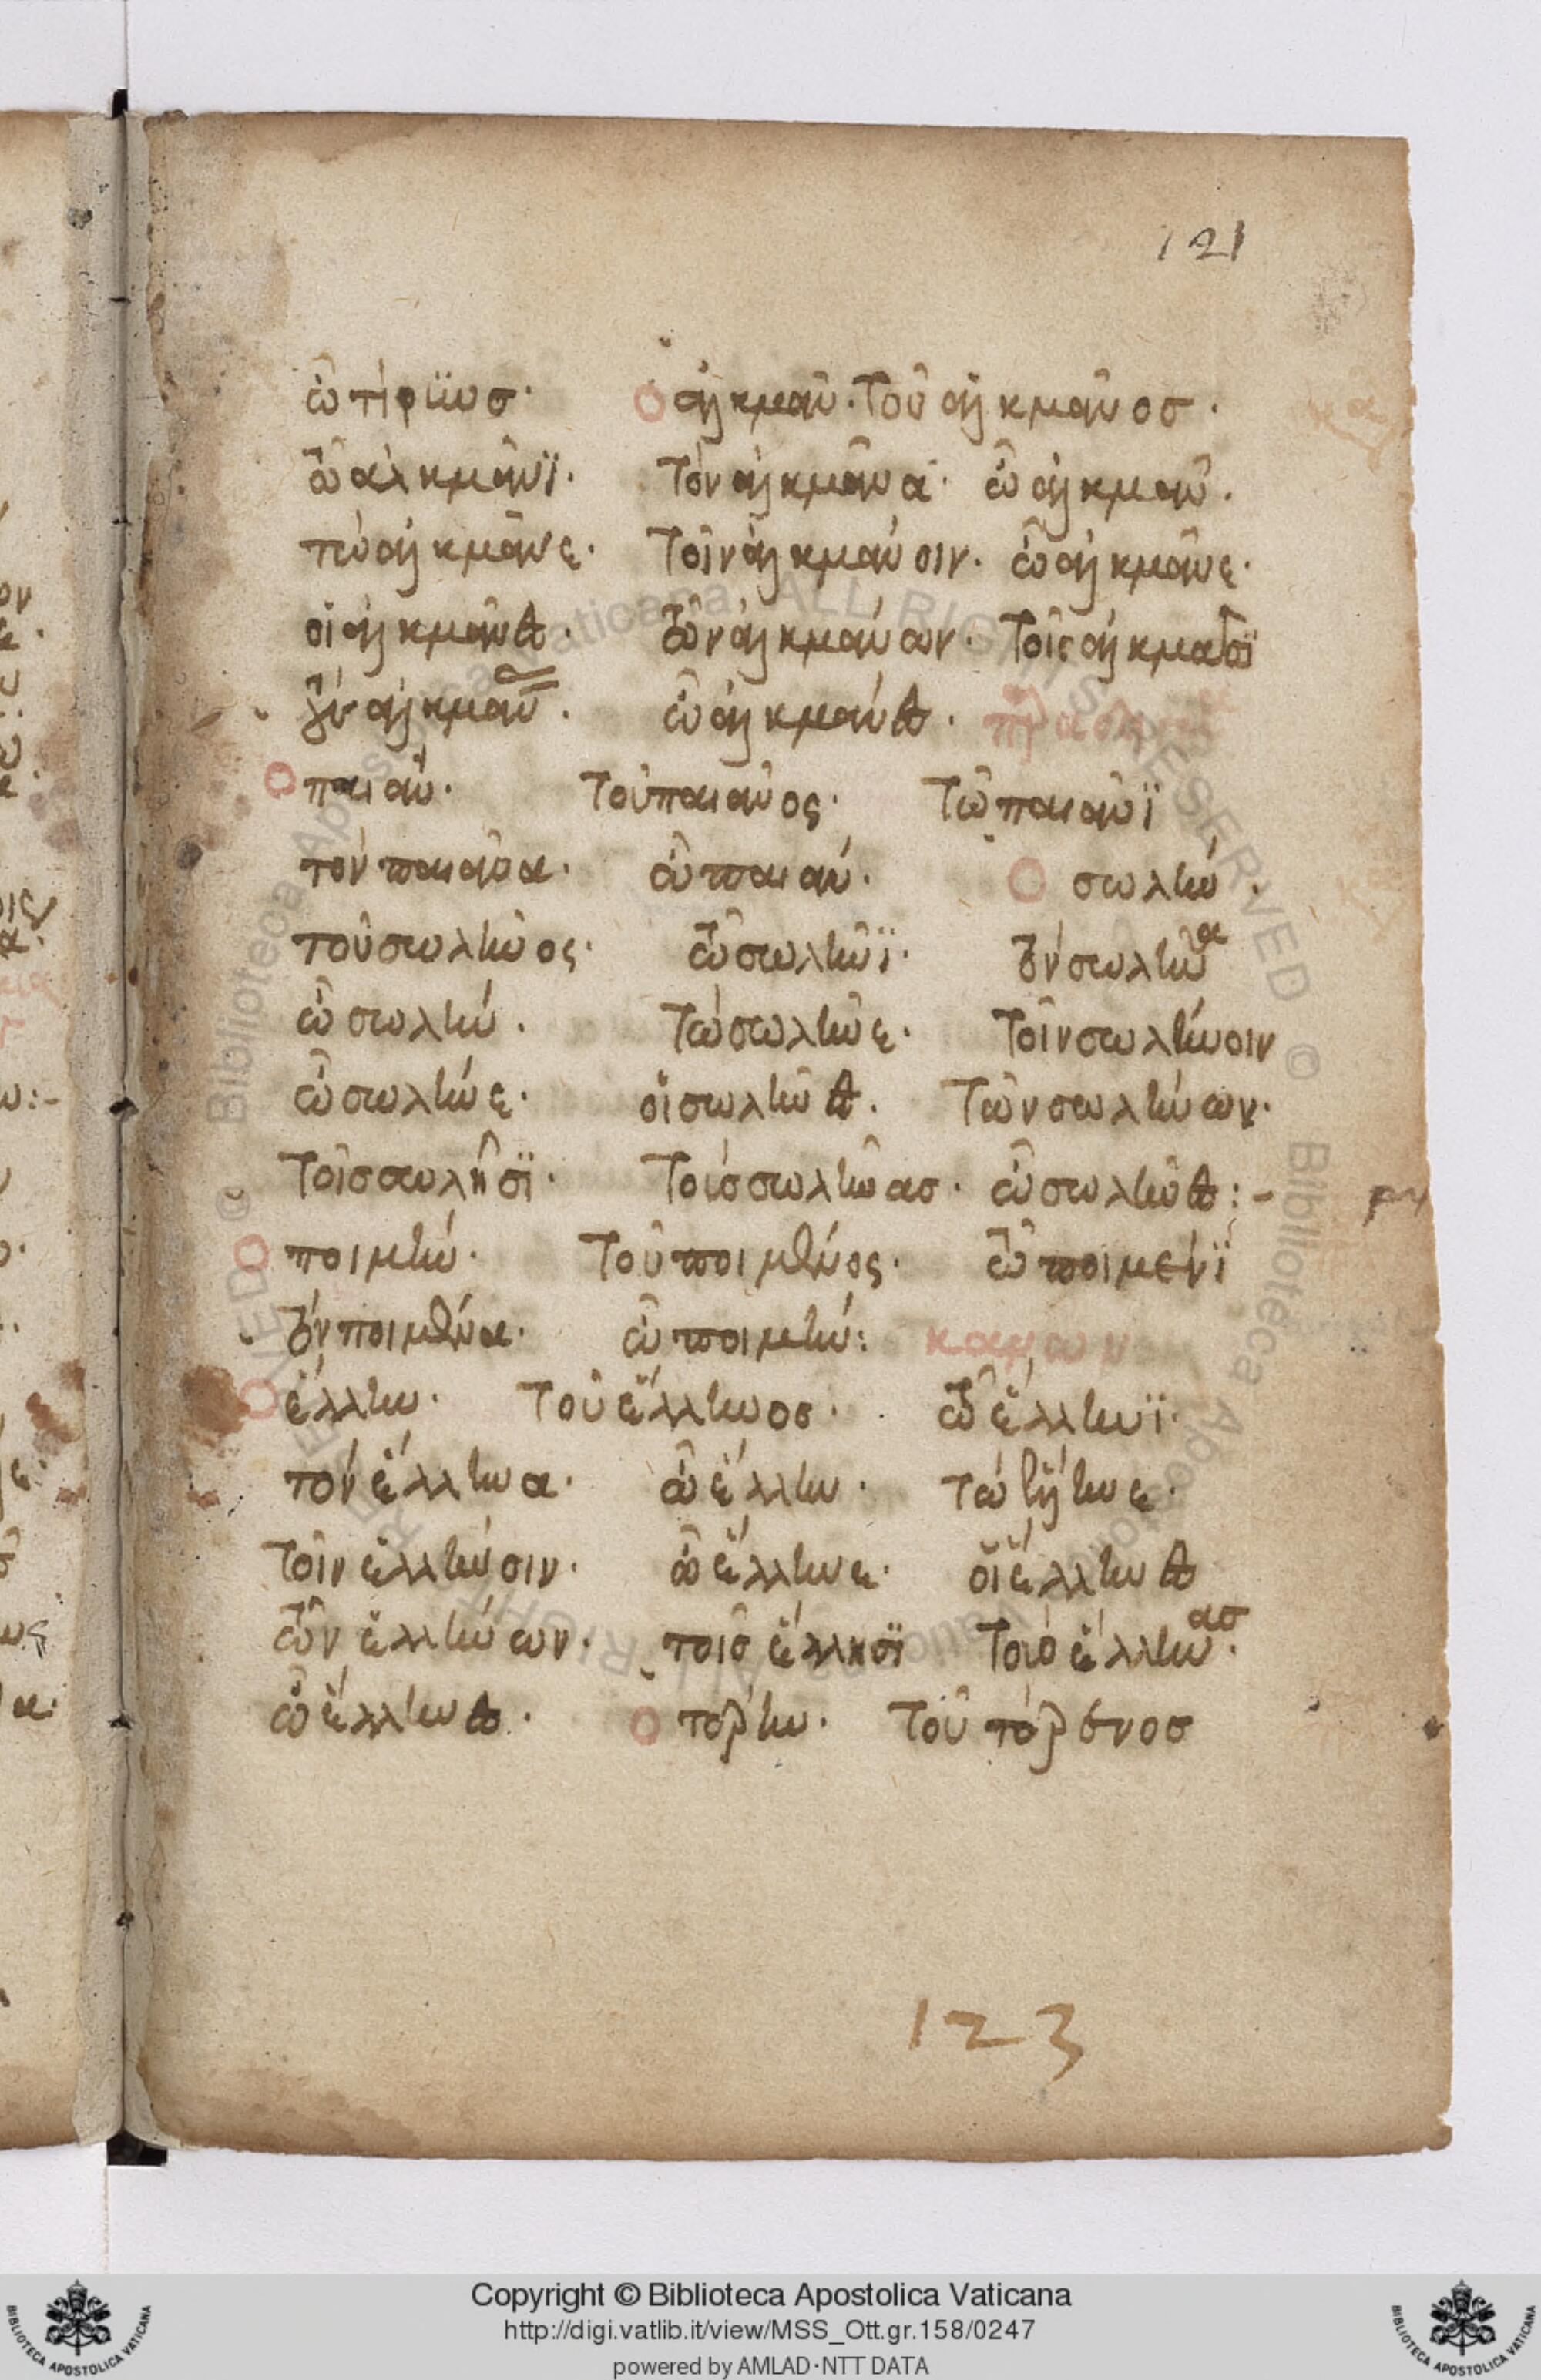 121
ὦ τίρϋνσ· ὁ ἀλκμὰν· τοῦ ἀλκμᾶνοσ·
τῶ ἀλκμᾶνϊ· τὸν ἀλκμᾶνα· ὦ ἀλκμὰν·
τὼ ἀλκμᾶνε· τοῖν ἀλκμάνοιν· ὦ ἀλκμᾶνε·
οἱ ἀλκμᾶνες· τῶν ἀλκμάνων· τοῖς ἀλκμᾶσϊ
τοὺς ἀλκμᾶνας· ὦ ἀλκμᾶνες·
ὁ παιὰν· τοῦ παιᾶνος· τῶ παιᾶνϊ
τὸν παιᾶνα· ὦ παιάν· ὁ σωλήν·
τοῦ σωλῆνος· τῶ σωλῆνϊ· τὸν σωλῆνα
ὦ σωλήν· τὼ σωλῆνε· τοῖν σωλήνοιν
ὦ σωλῆνε· οἱ σωλῆνες· τῶν σωλήνων·
τοῖσ σωλῆσϊ· τοὺσ σωλῆνασ· ὦ σωλῆνες:-
ὁ ποιμήν· τοῦ ποιμένος· τῶ ποιμένϊ
τὸν ποιμένα· ὦ ποιμήν: κανων
ὁ ἕλλην· τοῦ ἕλληνοσ· τῶ ἕλληνϊ·
τὸν ἕλληνα· ὦ ἕλλην· τὼ ἕλληνε·
τοῖν ἑλλήνοιν· ὦ ἕλληνε· οἱ ἕλληνες
τῶν ἑλλήνων· τοῖσ ἕλλησϊ τοὺσ ἕλληνασ·
ὦ ἕλληνες· ὁ τέρην· τοῦ τέρενοσ
123
Copyright © Biblioteca Apostolica Vaticana
http://digi.vatlib.it/view/MSS_Ott.gr.158/0247
powered by AMLAD·NTT DATA